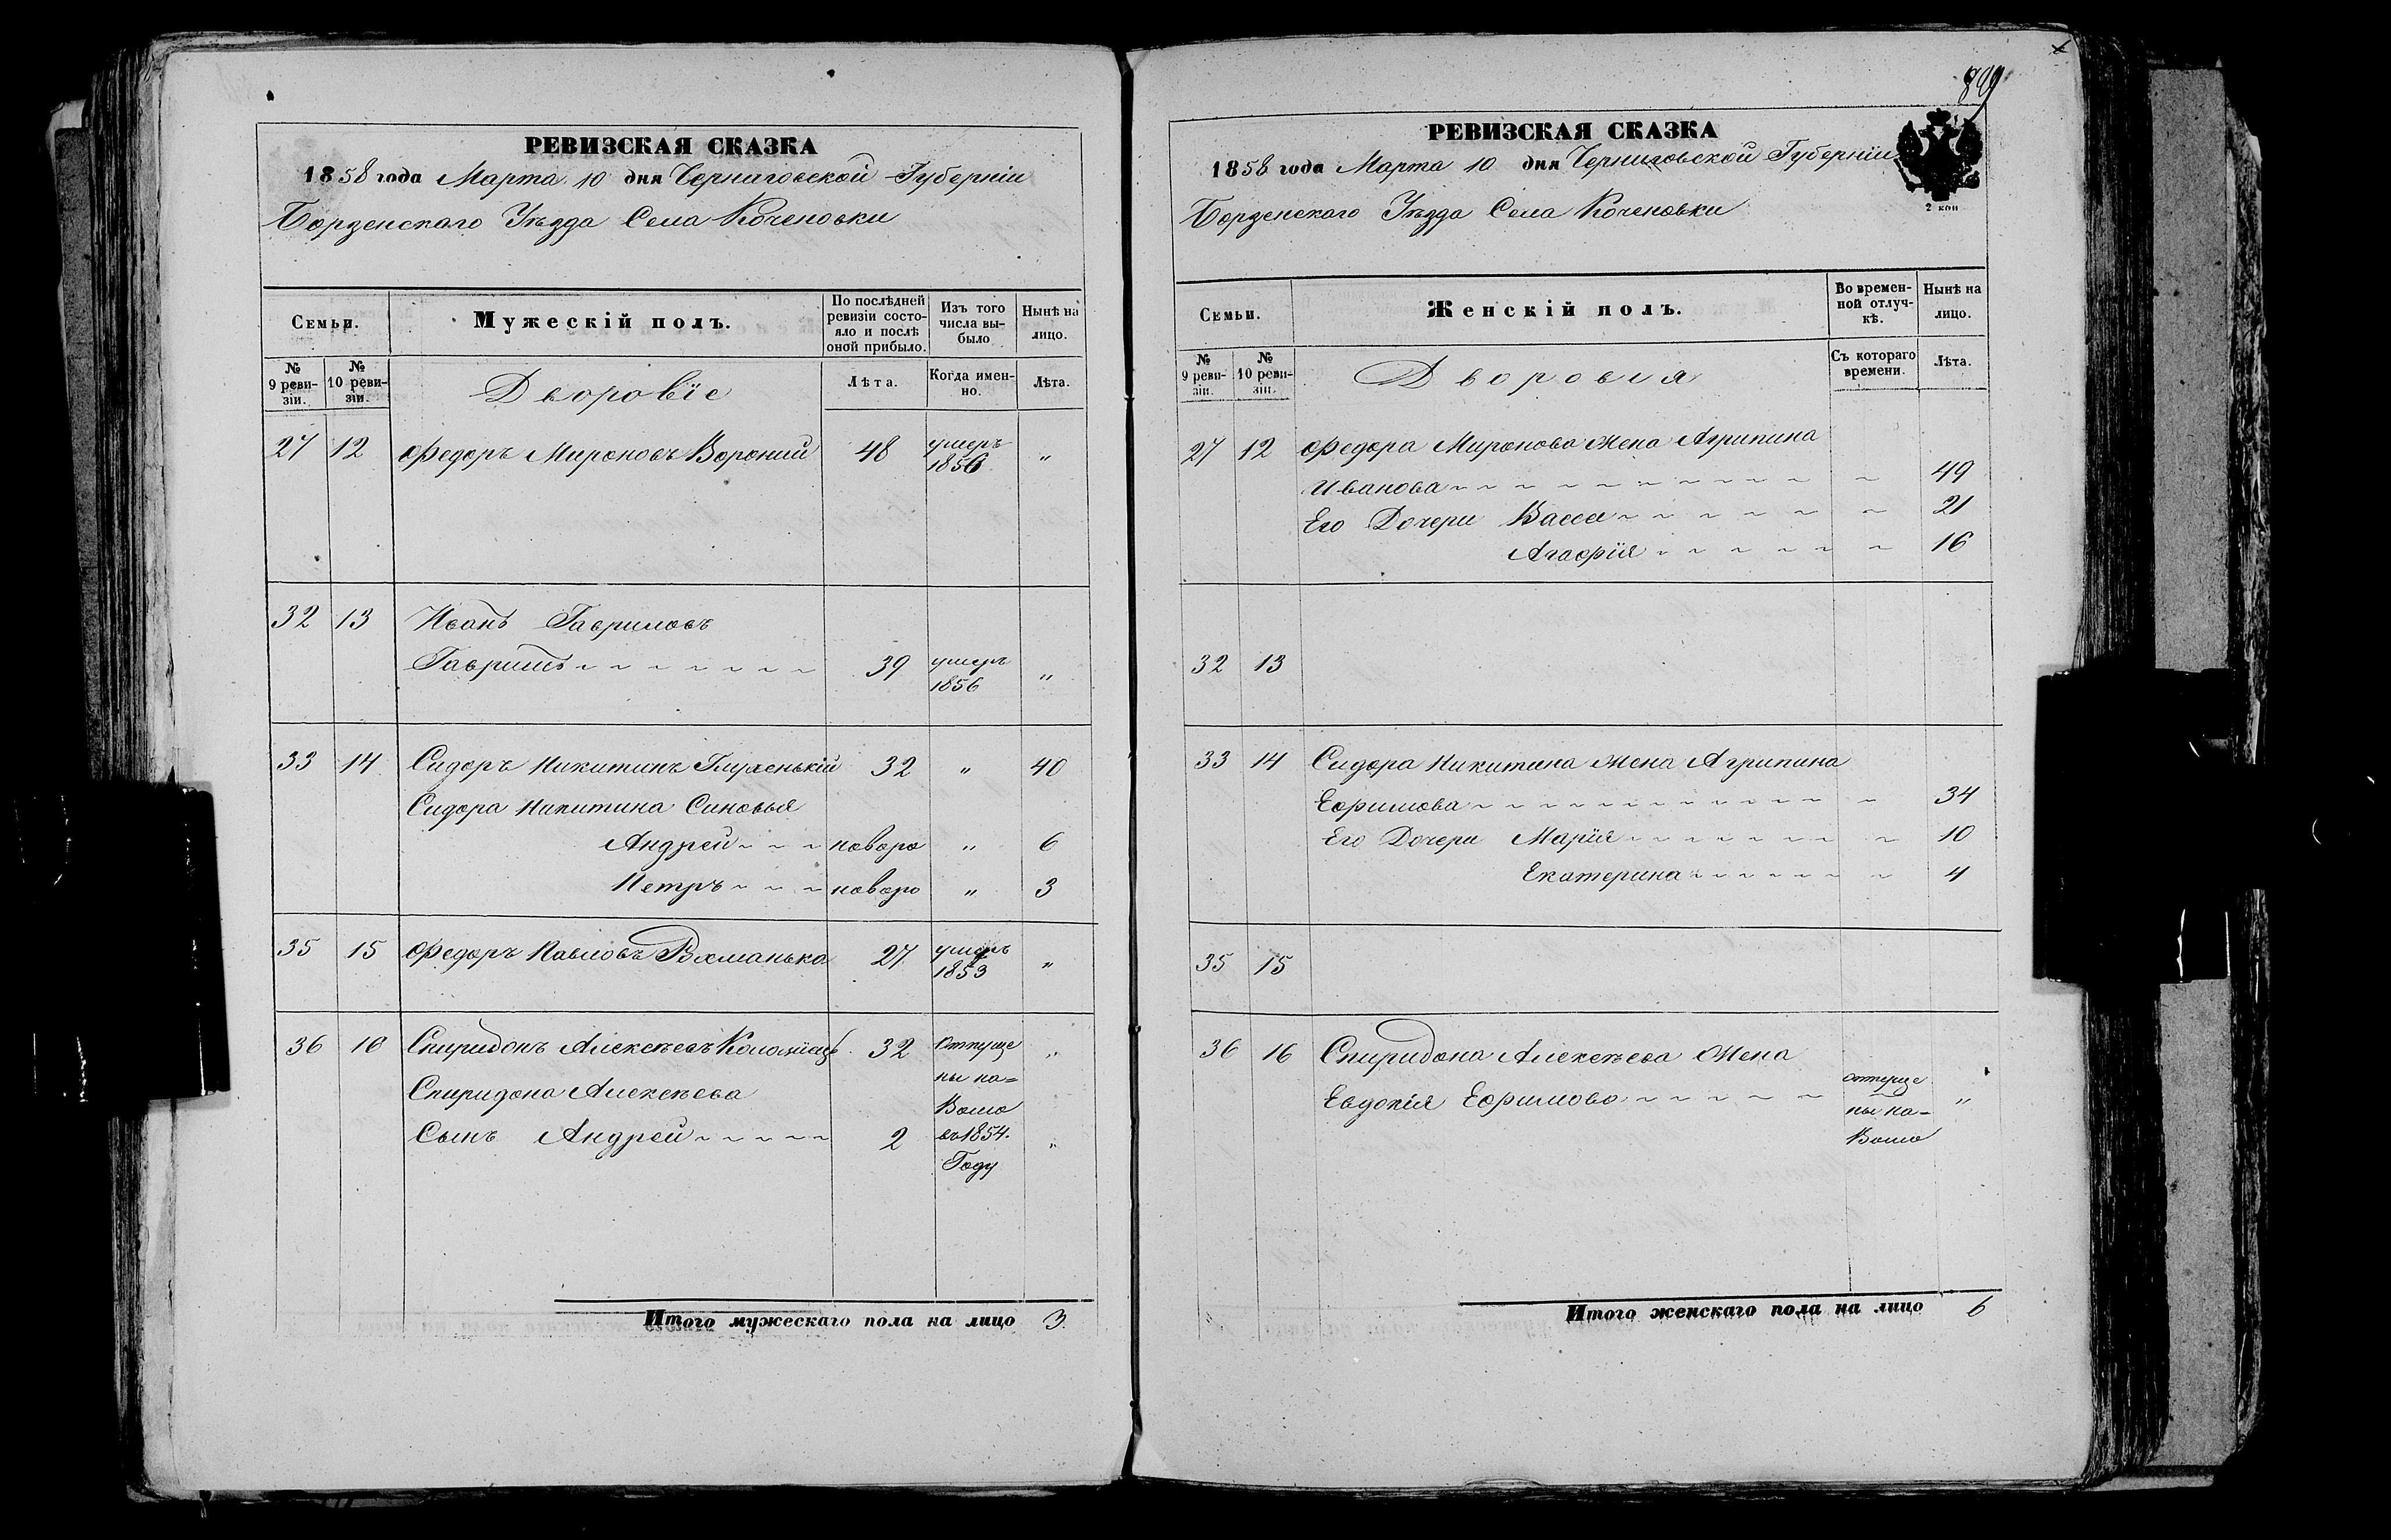 РЕВИЗСКАЯ СКАЗКА
1858 года Марта 10 дня Черниговской Губерніи
Борзенскаго Уѣзда Села Коченовки
Семьи.
Мужескій полъ.
По послѣдней ревизіи состояло и послѣ оной прибыло.
Изъ того числа выбыло
Нынѣ на лицо.
№ 9 ревизіи.
№ 10 ревизіи.
Дворовіе
Лѣта.
Когда именно.
Лѣта.
27 12 Федоръ Мироновъ Вороний 48 умеръ 1856 "
32 13 Иванъ Гавриловъ
Гавришъ 39 умеръ 1856 "
33 14 Сидоръ Никитинъ Глухенькій 32 " 40
Сидора Никитина Синовья
Андрей новоро " 6
Петръ новоро " 3
35 15 Федоръ Павловъ 27 умеръ 1853 "
36 16 Спиридонъ Алексѣевъ Коломіецъ 32 Отпуще "
Спиридона Алексѣева ны на= Волю
Сынъ Андрей 2 въ 1854. Году "
Итого мужескаго пола на лицо 3
899
РЕВИЗСКАЯ СКАЗКА
1858 года Марта 10 дня Черниговской Губерніи
2 коп
Борзенскаго Уѣзда Села Коченовки
Семьи.
Женскій полъ.
Во временной отлучкѣ.
Нынѣ на лицо.
№ 9 ревизіи.
№ 10 ревизіи.
Дворовія
Съ котораго времени.
Лѣта.
27 12 Федора Миронова Жена Агрипина
Иванова 49
Его Дочери Васса 21
Агафія 16
32 13
33 14 Сидора Никитина Жена Агрипина
Ефимова 34
Его Дочери Марія 10
Екатерина 4
35 15
36 16 Спиридона Алексѣева Жена
Евдокія Ефимова отпуще ны на= Волю "
Итого женскаго пола на лицо 6